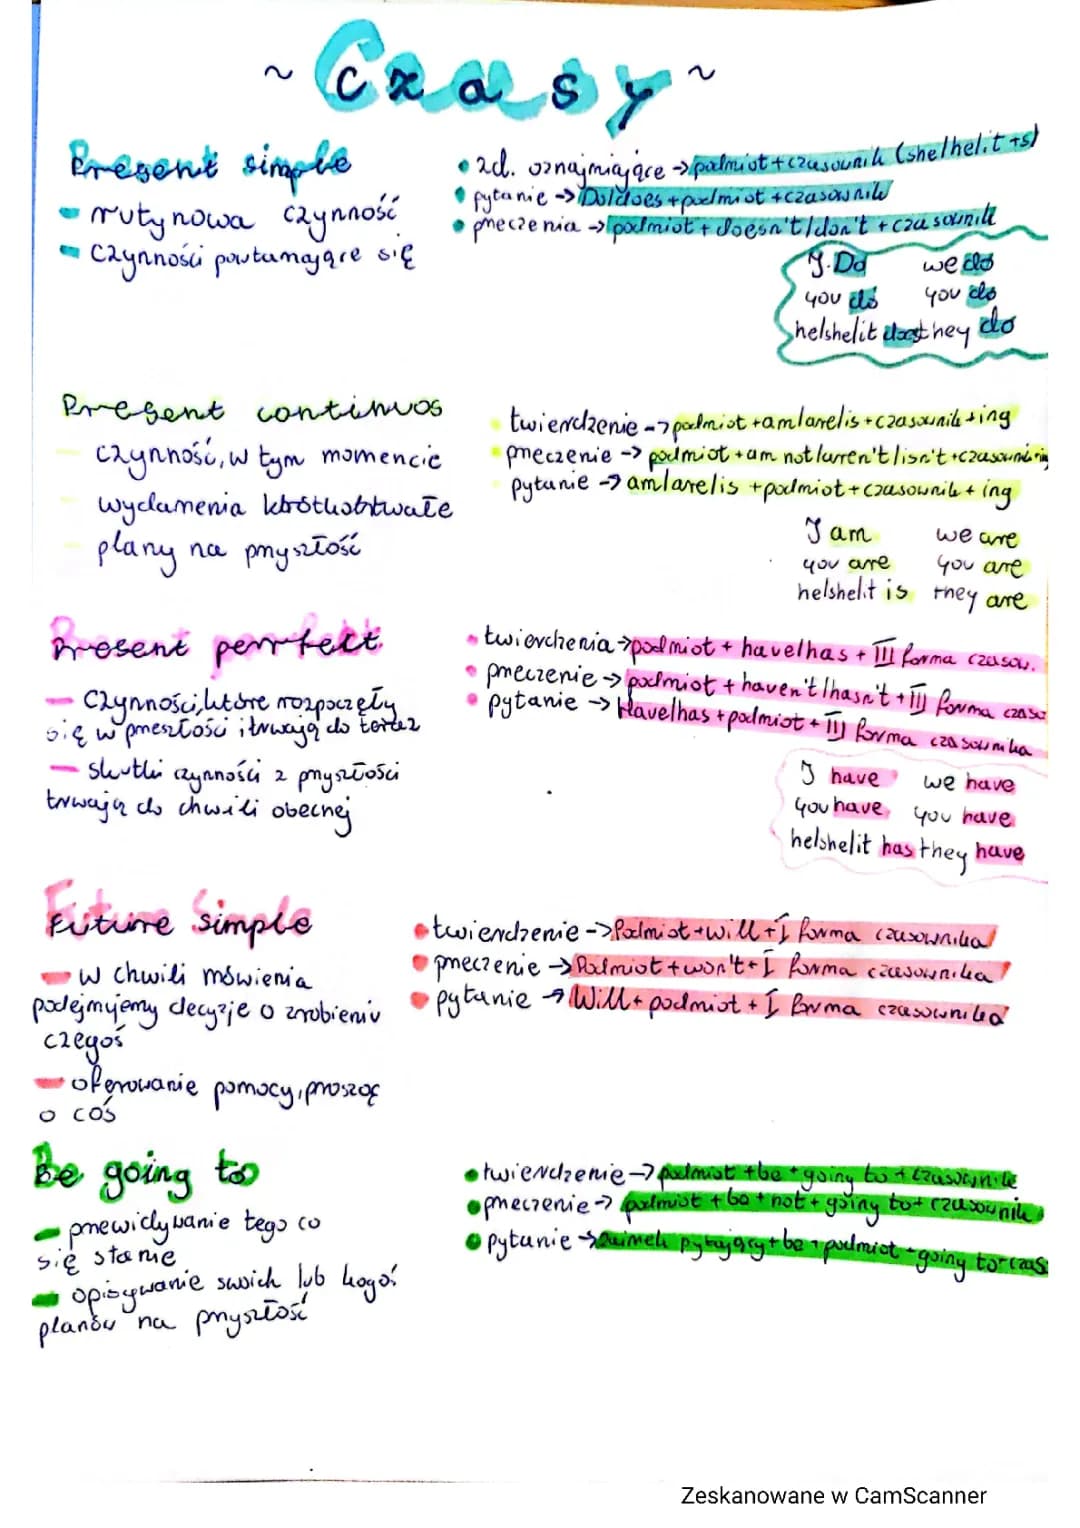 ~ Czasy ~
Present simple
- rutynowa czynność
- czynności powtarzające się
• zd. oznajmiające -> podmiot + czasownik (she/he/it +s)
• pytanie -> Do/does + podmiot + czasownik
• przeczenia -> podmiot + doesn't/don't + czasownik
I Do we do
you do you do
he/she/it does they do
Present continuos
- czynność, w tym momencie
- wydarzenia krótkotrwałe
- plany na przyszłość
• twierdzenie -> podmiot + am/are/is + czasownik + ing
• przeczenie -> podmiot + am not/arren't/isn't + czasownik ing
• pytanie -> am/are/is + podmiot + czasownik + ing
I am we are
you are you are
he/she/it is they are
Present perfect
- Czynności, które rozpoczęły
się w przeszłości i trwają do teraz
- skutki czynności z przyszłości
trwają do chwili obecnej
• twierdzenia -> podmiot + have/has + III forma czasow.
• przeczenie -> podmiot + haven't/hasn't + III forma czaso
• pytanie -> Have/has + podmiot + III forma czasownika
I have we have
you have you have
he/she/it has they have
Future Simple
- w chwili mówienia
podejmujemy decyzje o zrobieniu
czegoś
- oferowanie pomocy, prosząc
o coś
• twierdzenie -> Podmiot + will + I forma czasownika
• przeczenie -> Podmiot + won't + I forma czasownika
• pytanie -> Will + podmiot + I forma czasownika
Be going to
- przewidywanie tego co
się stanie
- opisywanie swoich lub kogoś
planów na przyszłość
• twierdzenie -> podmiot + be + going to + czasownik
• przeczenie -> podmiot + be + not + going to + czasownik
• pytanie -> zaimek pytający + be + podmiot + going to + czas
Zeskanowane w CamScanner